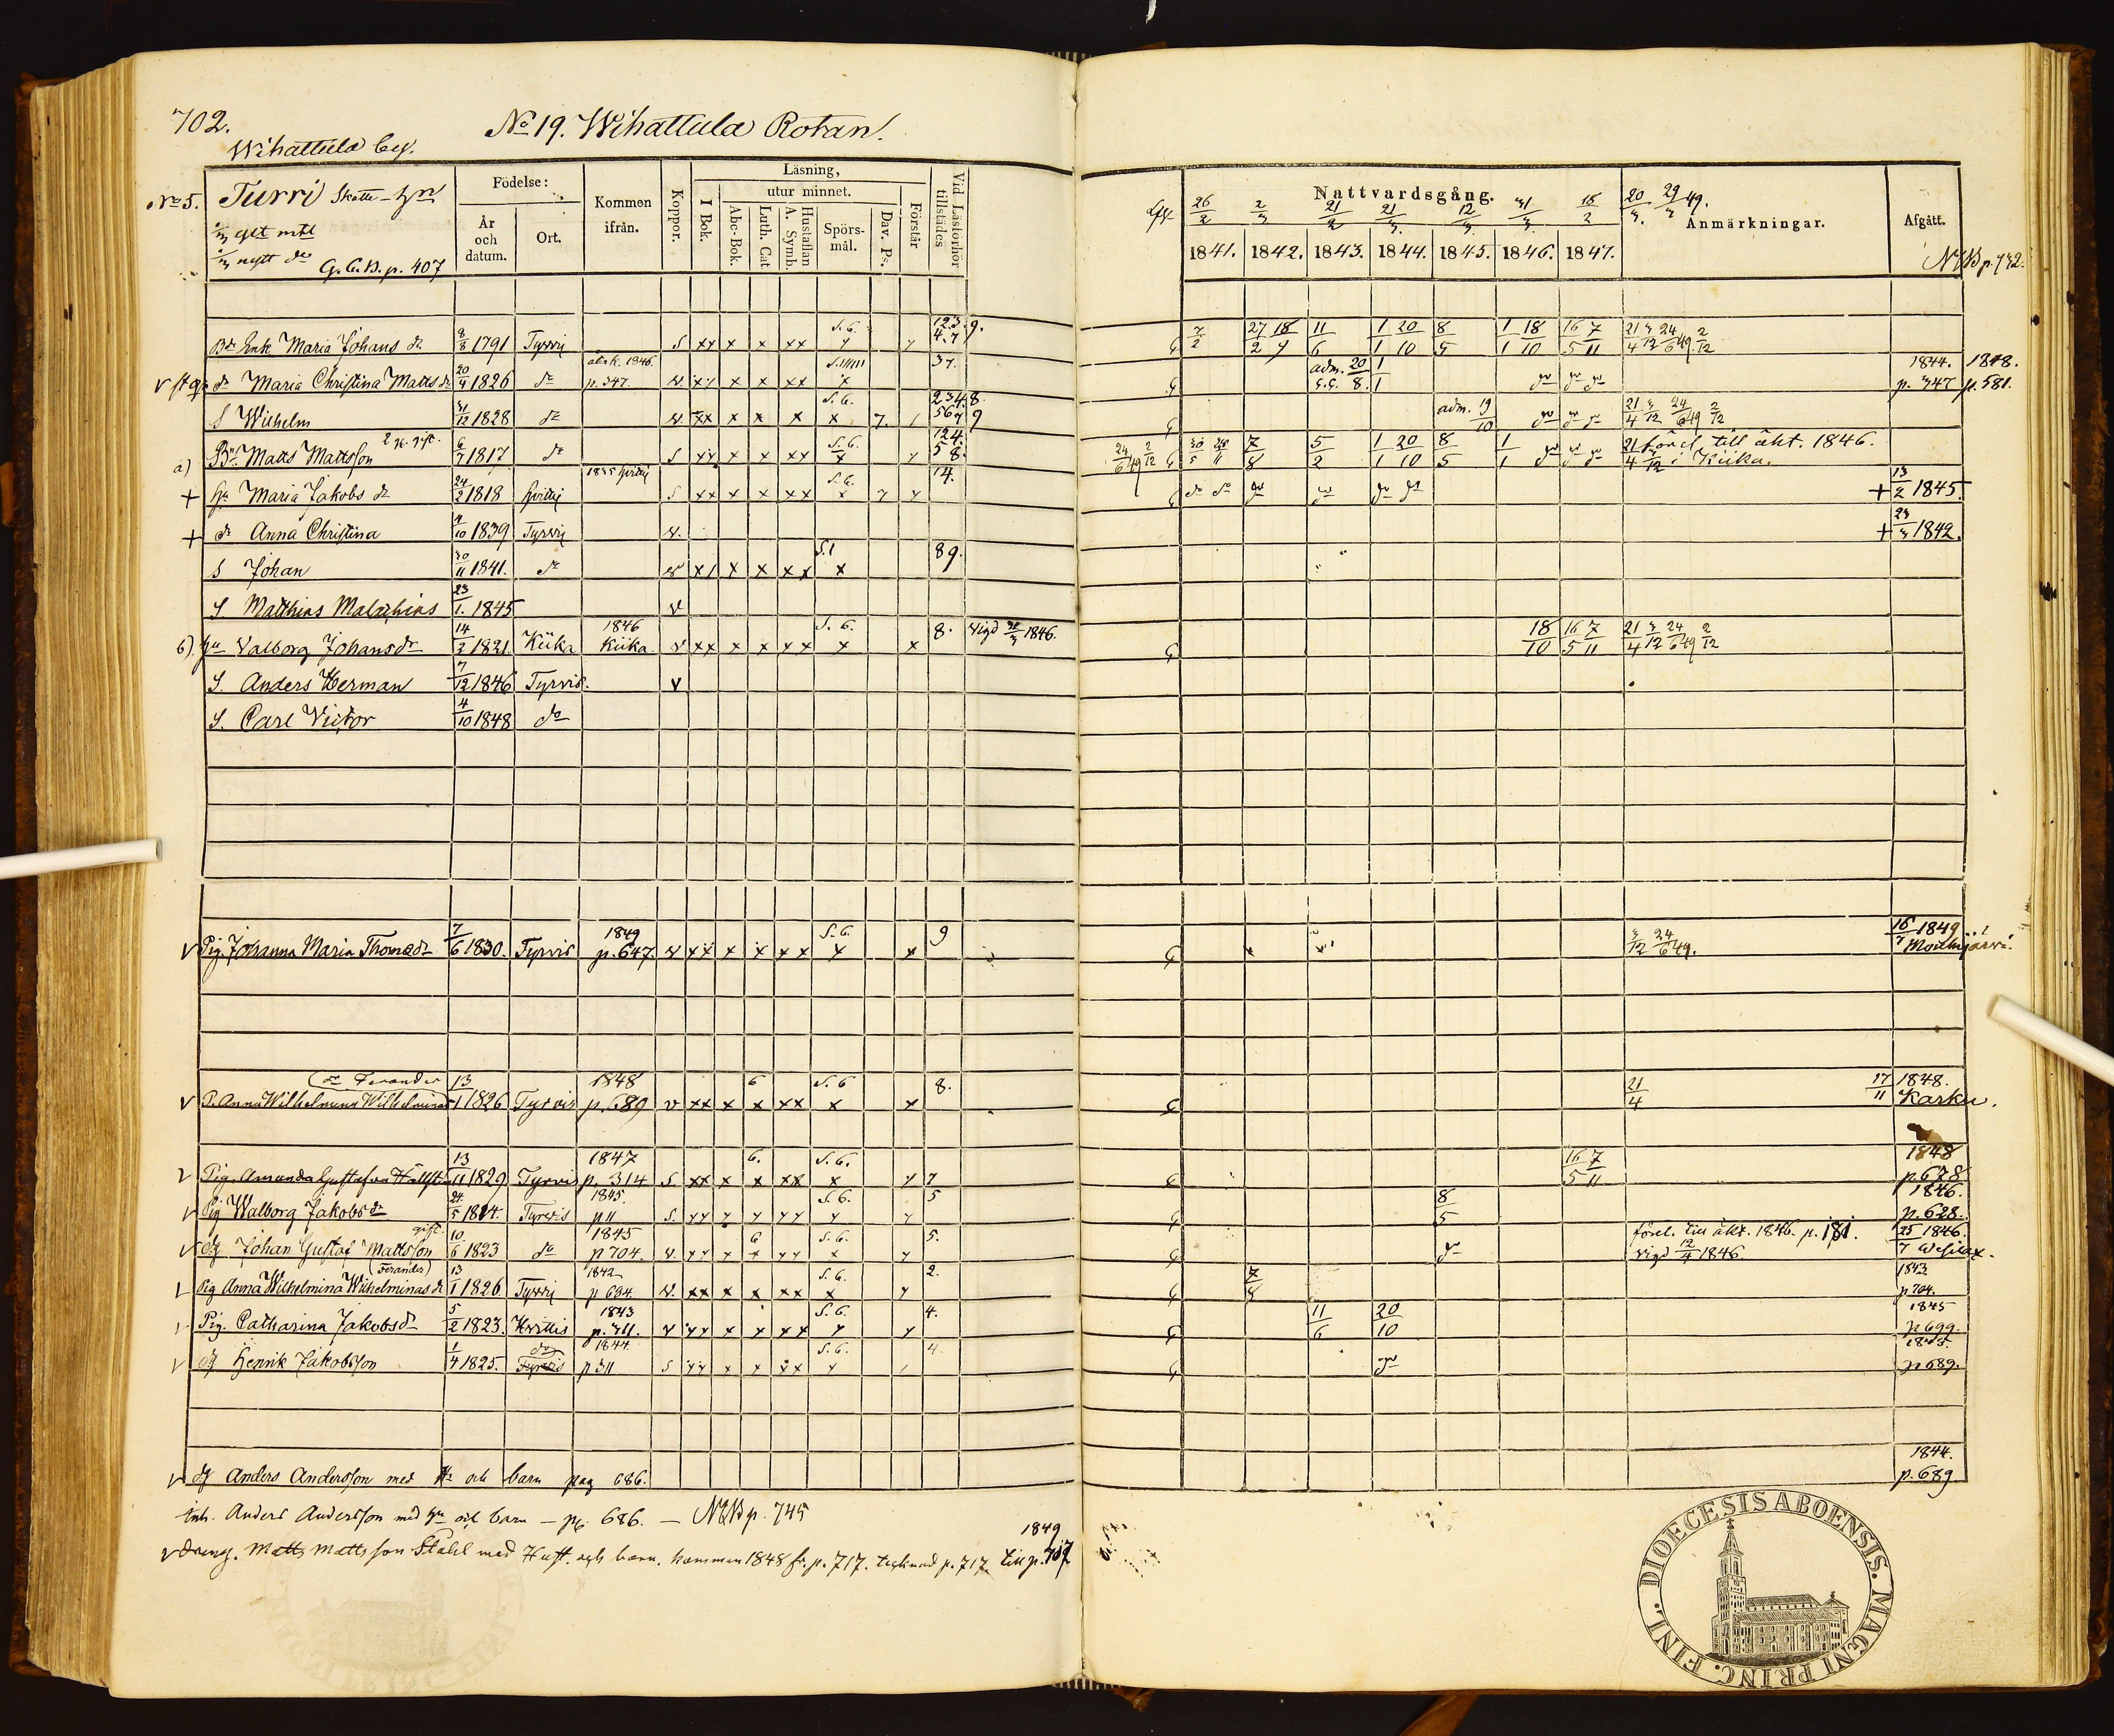 702.
No 19. Wihattula Rotan.
Wihattula by.
No 5. Turri Skatte-hn
1/3 glt mtl
1/3 nytt do
G.C.B. p. 407
Födelse:
År och datum.
Ort.
Kommen ifrån.
Koppor.
Läsning,
I Bok.
utur minnet.
Abc-Bok.
Luth. Cat
Hustaflan A. Symb.
Spörsmål.
Dav. Ps.
Förstår
Vid Läsförhör tillstädes
Nattvardsgång.
26/2 2/3 21/2 21/3 12/3 31/3 18/2 20/3 29/3 49.
1841. 1842. 1843. 1844. 1845. 1846. 1847.
Anmärkningar.
Afgått.
NCB p. 732.
Bdr Enk Maria Johans dr 8/8 1791 Tyrvis S xx x x xx S.6. 123.9. 4.7 27/2 18/7 11/6 1/1 20/10 8/5 1/1 18/10 16/5 7/11 21/4 3/12 24/6 49 2/12
dr Maria Christina Matts dr 20/9 1826 do åtk. 1846. p. 347. v. xx x x xx 37. adm. 20/8. 1/1 do do do 1844. p. 347 1848. p. 581.
S Wilhelm 31/12 1828 do v. xx x x x x S.6. 234.8. 567 9 adm. 19/10 do do do 21/4 3/12 24/6 49 2/12
a) Bn Matts Mattsson 2 g. gift. 6/7 1817 do S xx x x xx S.6. 124. 58. 24/6 49 2/12 30/5 28/11 7/8 5/2 1/1 20/10 8/5 1/1 do do do 21/4 3/12 förel. till äkt. 1846. i Kiika.
+ Hu Maria Jakobs dr 24/2 1818 1835 S xx x x xx S.6. x 14. do do do do do do + 13/2 1845.
+ dr Anna Christina 4/10 1839 Tyrvis v. + 23/3 1842.
S Johan 30/11 1841. do v x/ x x xx S.1 x 89.
S Matthias Malachias 23/1. 1845 v
b) Hu Valborg Johansdr 14/2 1821 Kiika 1846 Kiika v xx x x xx S.6. x x 8. Vigd 31/3 1846. 18/10 16/5 7/11 21/4 3/12 24/6 49 2/12
S. Anders Herman 7/12 1846 Tyrvis. v
S. Carl Victor 4/10 1848 do
v Pig. Johanna Maria Thomædr 7/6 1830. Tyrvis 1849 p. 647. v xx x x xx S.6. x x 9 3/12 24/6 49. 16 1849 Mouhijärvi.
v P. Anna Wilhelmina Wilhelminas dr Ferander 13/1 1826 Tyrvis 1848 p. 689 v xx x x xx 6 S.6 x x 8. 21/4 17/11 1848. Karku.
v Pig. Amanda Gustafva 13/11 1829 Tyrvis 1847 p. 314 S xx x x xx 6. S.6. x 7 16/5 7/11 1848 p. 678
v Pig Walborg Jakobs dr 24/5 1824. Tyrvis 1845. p 11 S. S.6. 5 8/5 1846. p. 628.
v dg Johan Gustaf Mattsson gift 10/6 1823 do 1845 p 704. v. xx x x xx 6 S.6. x 5. do förel. till äkt. 1846. p. 181. vigd 12/4 1846. 25/7 1846. Wesilax.
v Pig Anna Wilhelmina Wilhelminas dr (Ferander) 13/1 1826 Tyrvis 1842 p 694. v. xx x x xx S.6. x 2. 7/8 1843 p 704.
v Pig. Catharina Jakobsdr 5/2 1823. Hvittis 1843 p. 311. v S.6. 4. 11/6 20/10 1845 p 699.
v dg Henrik Jakobsson 1/4 1825. Tyrvis do 1844 p 311 S S.6. 4. do 1845. p 689.
v dg Anders Andersson med Hu och barn pag 686. 1844. p. 689.
inh. Anders Andersson med hu och barn — pg. 686. — NCB p. 745
v dreng. Matts Mattsson Stahl med Hust. och barn. kommen 1848 fr. p. 717. tecknad p. 717. 1849 till p. 707
DIOECESIS ABOENSIS. MAGNI PRINC. FINL.